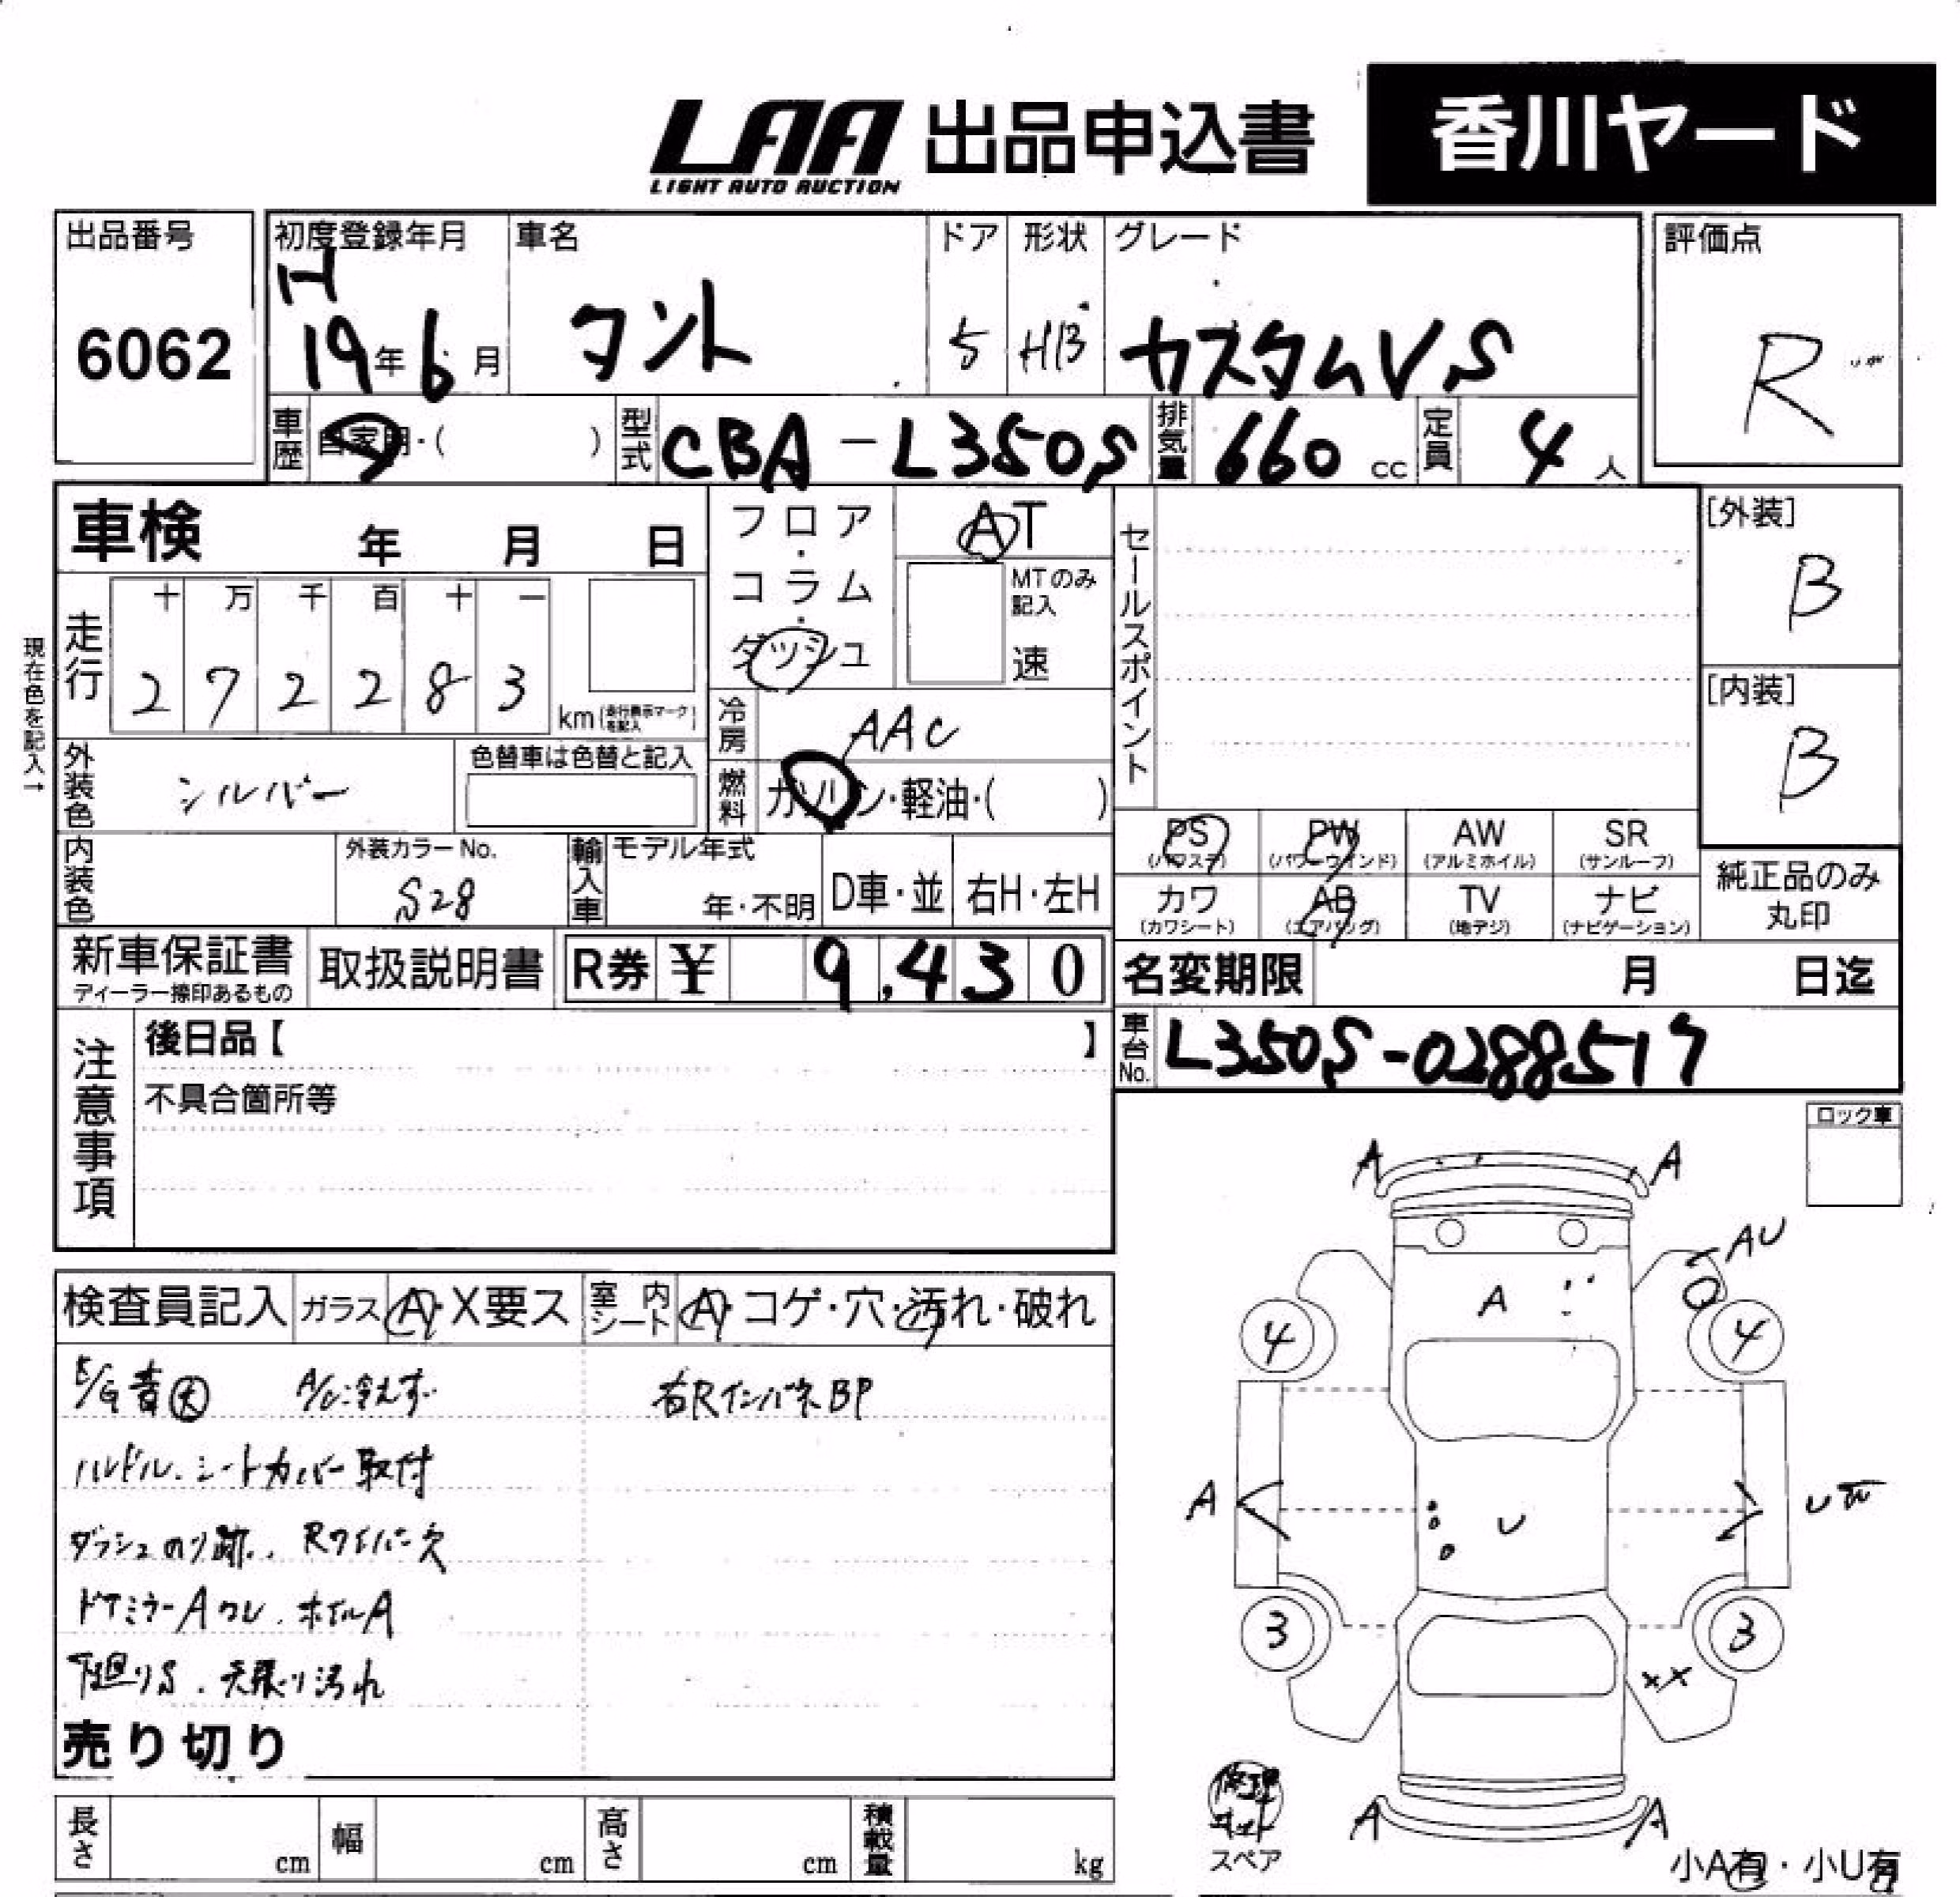 LAA 出品申込書 香川ヤード
LIGHT AUTO AUCTION
出品番号
6062
初度登録年月
H
19年6月
車名
タント
ドア
5
形状
HB
グレード
カスタムVS
評価点
R
車歴
自家用・( )
型式
CBA-L350S
排気量
660cc
定員
4人
車検 年 月 日
フロア・コラム・ダッシュ
AT
MTのみ記入
速
セールスポイント
[外装]
B
[内装]
B
現在色を記入→
走行
十 万 千 百 十 一
2 7 2 2 8 3
km(走行表示マークを記入)
冷房
AAC
燃料
ガソリン・軽油・( )
外装色
シルバー
色替車は色替と記入
内装色
外装カラーNo.
S28
輸入車
モデル年式
年・不明
D車・並
右H・左H
PS
(パワステ)
PW
(パワーウインド)
AW
(アルミホイル)
SR
(サンルーフ)
カワ
(カワシート)
AB
(エアバッグ)
TV
(地デジ)
ナビ
(ナビゲーション)
純正品のみ
丸印
新車保証書
ディーラー捺印あるもの
取扱説明書
R券 ¥ 9,430
名変期限 月 日迄
車台No.
L350S-0288517
注意事項
後日品【 】
不具合箇所等
ロック車
検査員記入
ガラス
A・X要ス
室内シート
A・コゲ・穴・汚れ・破れ
E/G音大 A/C冷えず
右RインパネBP
ハンドル、シートカバー取付
ダッシュのり跡、Rワイパー欠
ドアミラーAワレ、ホイルA
下廻りS、天張り汚れ
売り切り
A A
AU
A
4 4
A U
3 3
XX
A A
修理キット
スペア
小A有・小U有
長さ cm
幅 cm
高さ cm
積載量 kg